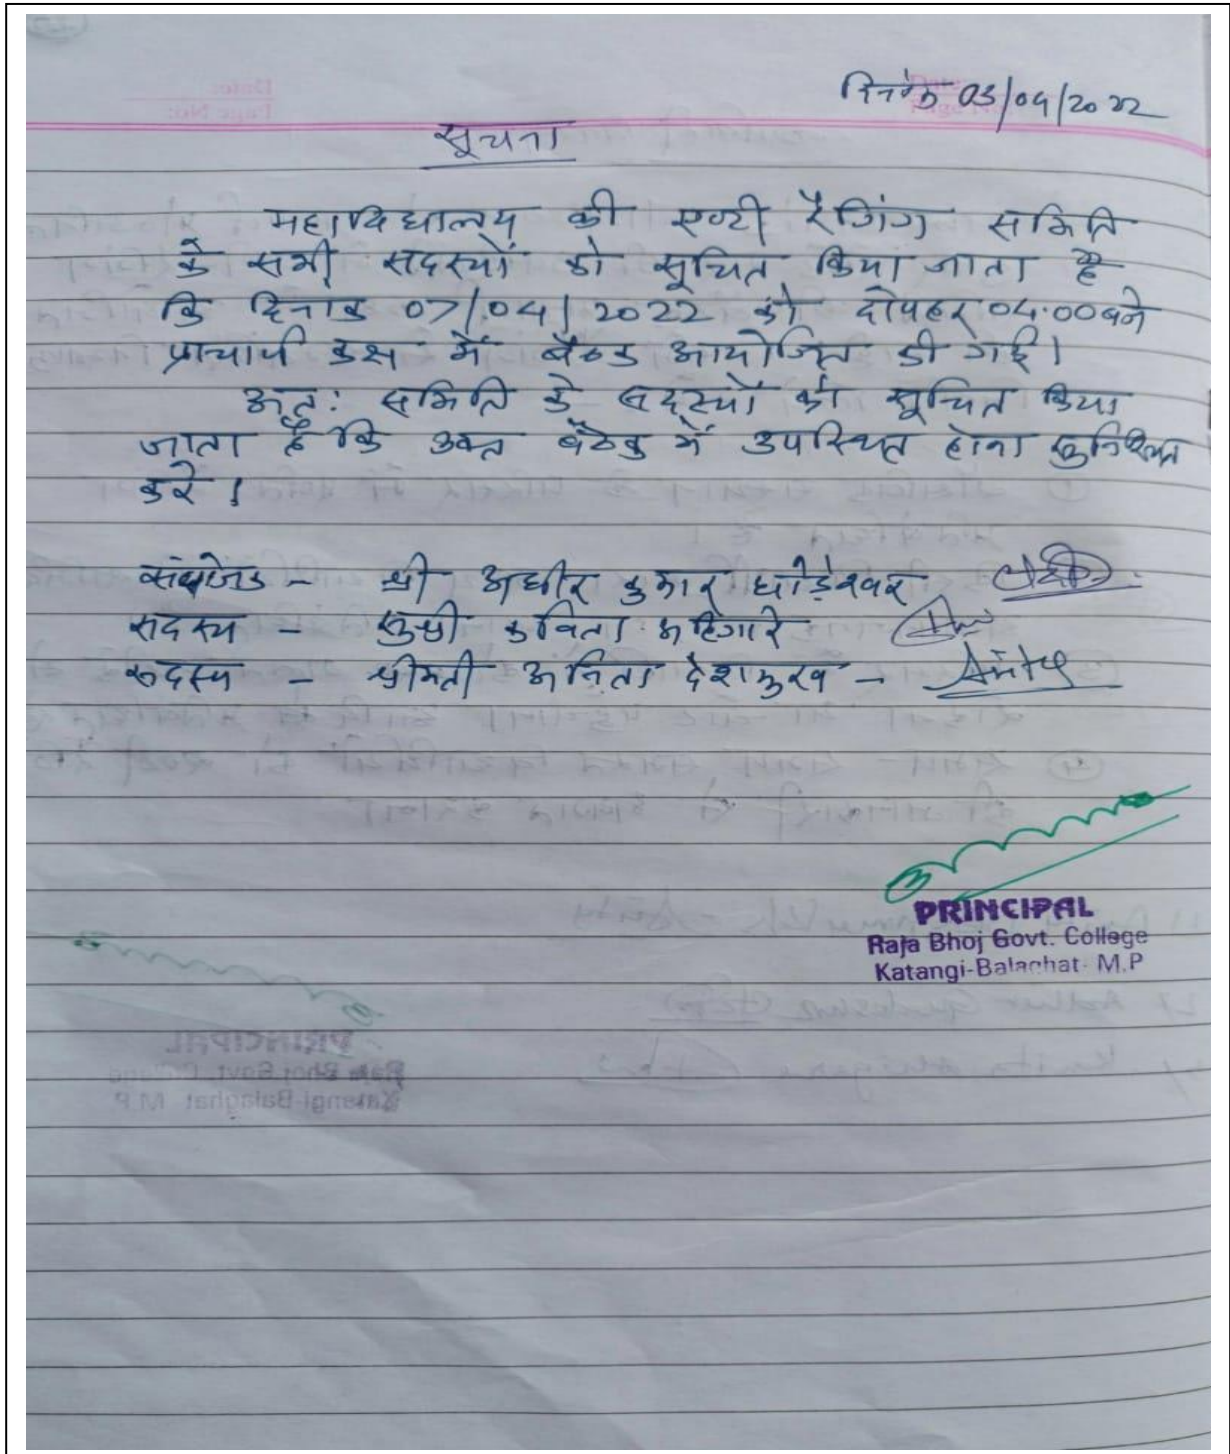 दिनांक 03/04/2022
सूचना
महाविद्यालय की एण्टी रैगिंग समिति
के सभी सदस्यों को सूचित किया जाता है
कि दिनाक 07/04/2022 को दोपहर 04.00 बजे
प्राचार्य कक्ष में बैठक आयोजित की गई।
अतः समिति के सदस्यों को सूचित किया
जाता है कि उक्त बैठक में उपस्थित होना सुनिश्चित
करे।
संयोजक - श्री अधीर कुमार धोड़ेश्वर
सदस्य - सुश्री कविता अहिगारे
सदस्य - श्रीमती अनिता देशमुख - Anita
PRINCIPAL
Raja Bhoj Govt. College
Katangi-Balaghat M.P